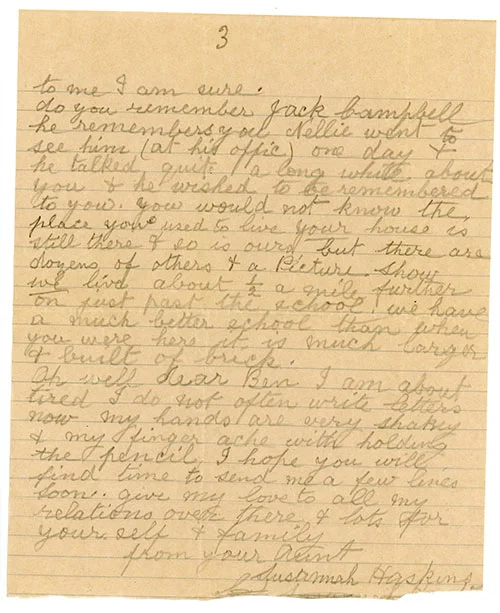 3
to me I am sure.
do you remember Jack Campbell
he remembers you Nellie went to
see him (at his offic) one day &
he talked quit a long while about
you & he wished to be remembered
to you. you would not know the
place you used to live your house is
still there & so is ours but there are
dozens of others & a Picture Show
we live about 1/2 a mile further
on just past the school. we have
a much better school than when
you were here it is much larger
& built of brick.
Oh well dear Ben I am about
tired I do not often write letters
now my hands are very shaky
& my finger ache with holding
the pencil I hope you will
find time to send me a few lines
soon. give my love to all my
relations over there & lots for
your self & family
from your Aunt
Susannah Hosking